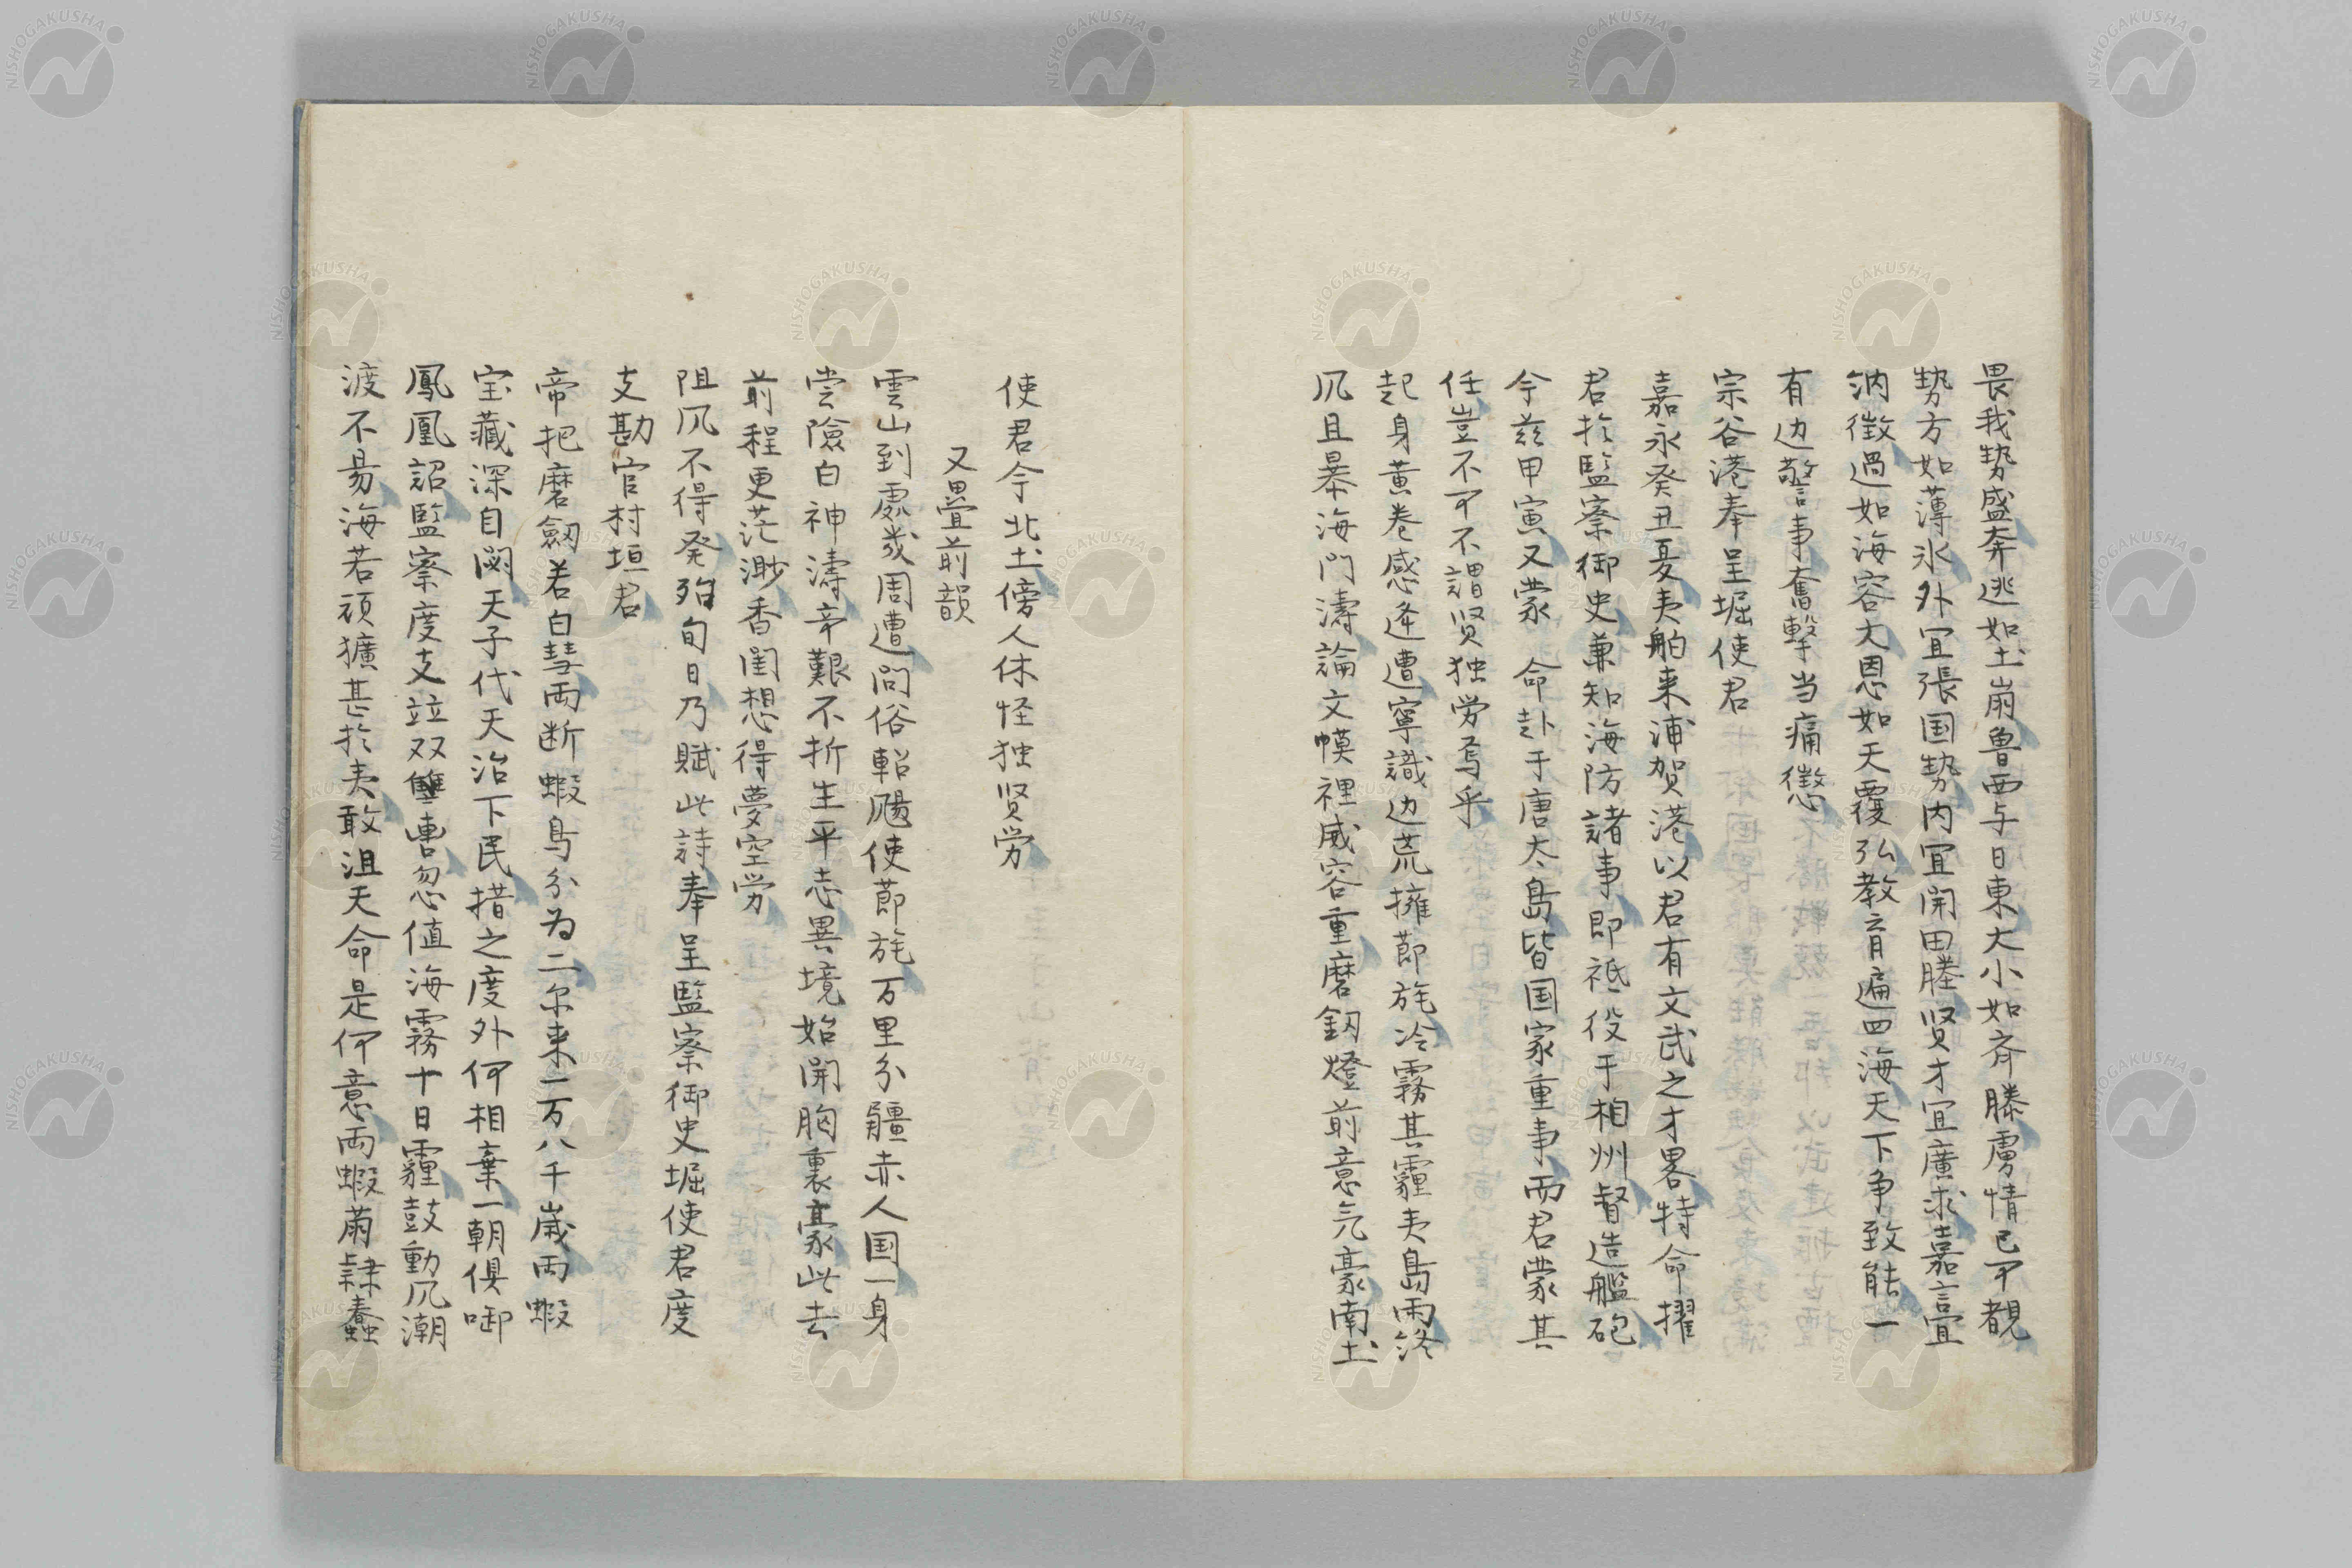 畏我势盛奔逃如土崩魯西与日東大小如斉滕虜情已可覩
势方如薄氷外宜張国势内宜開田塍贤才宜廣求嘉言宜
納徴過如海容大恩如天覆弘教育遍四海天下争致能一
有边警事奮擊当痛懲
宗谷港奉呈堀使君
嘉永癸丑夏夷舶来浦賀港以君有文武之才畧特命擢
君於監察御史兼知海防諸事即祗役于相州督造艦砲
今茲甲寅又蒙 命赴于唐太島皆国家重事而君蒙其
任豈不可不謂贤独労焉乎
起身黄巻感逢遭寧識边荒擁莭旄冷霧其霾夷島雨終
风且暴海門濤論文幙裡威容重磨釼燈前意气豪南土
使君今北土傍人休怪独贤労
又畳前韻
雲山到處幾周遭問俗軺颺使莭旄万里分疆赤人国一身
尝險白神濤辛艱不折生平志異境始開胸裏豪此去
前程更茫渺香閨想得夢空労
阻风不得発殆旬日乃賦此詩奉呈監察御史堀使君度
支勘官村垣君
帝把磨劔若白彗両断蝦島分为二尔来一万八千歳両蝦
宝藏深自閟天子代天治下民措之度外何相棄一朝俱啣
鳳凰詔監察度支竝双雙轡忽値海霧十日霾鼓動风潮
渡不易海若頑獷甚於夷敢沮天命是何意両蝦蕭隷蠢